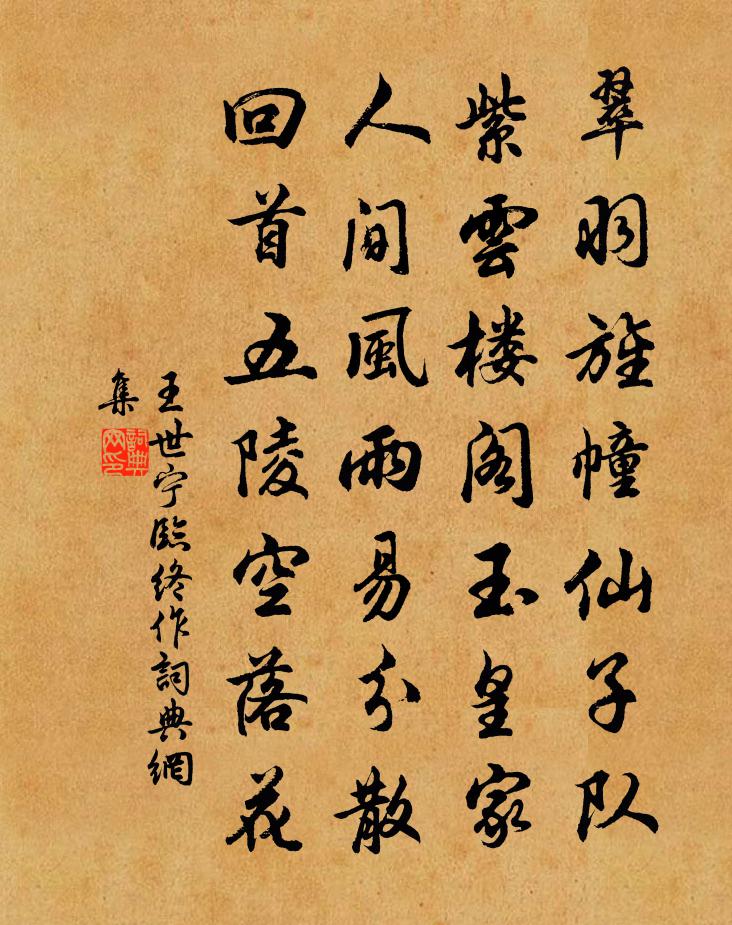 翠羽旌幢仙子队
紫雲楼阁玉皇家
人间風雨易分散
回首五陵空落花
王世宁臨终作詞典網
集
詞典
网印